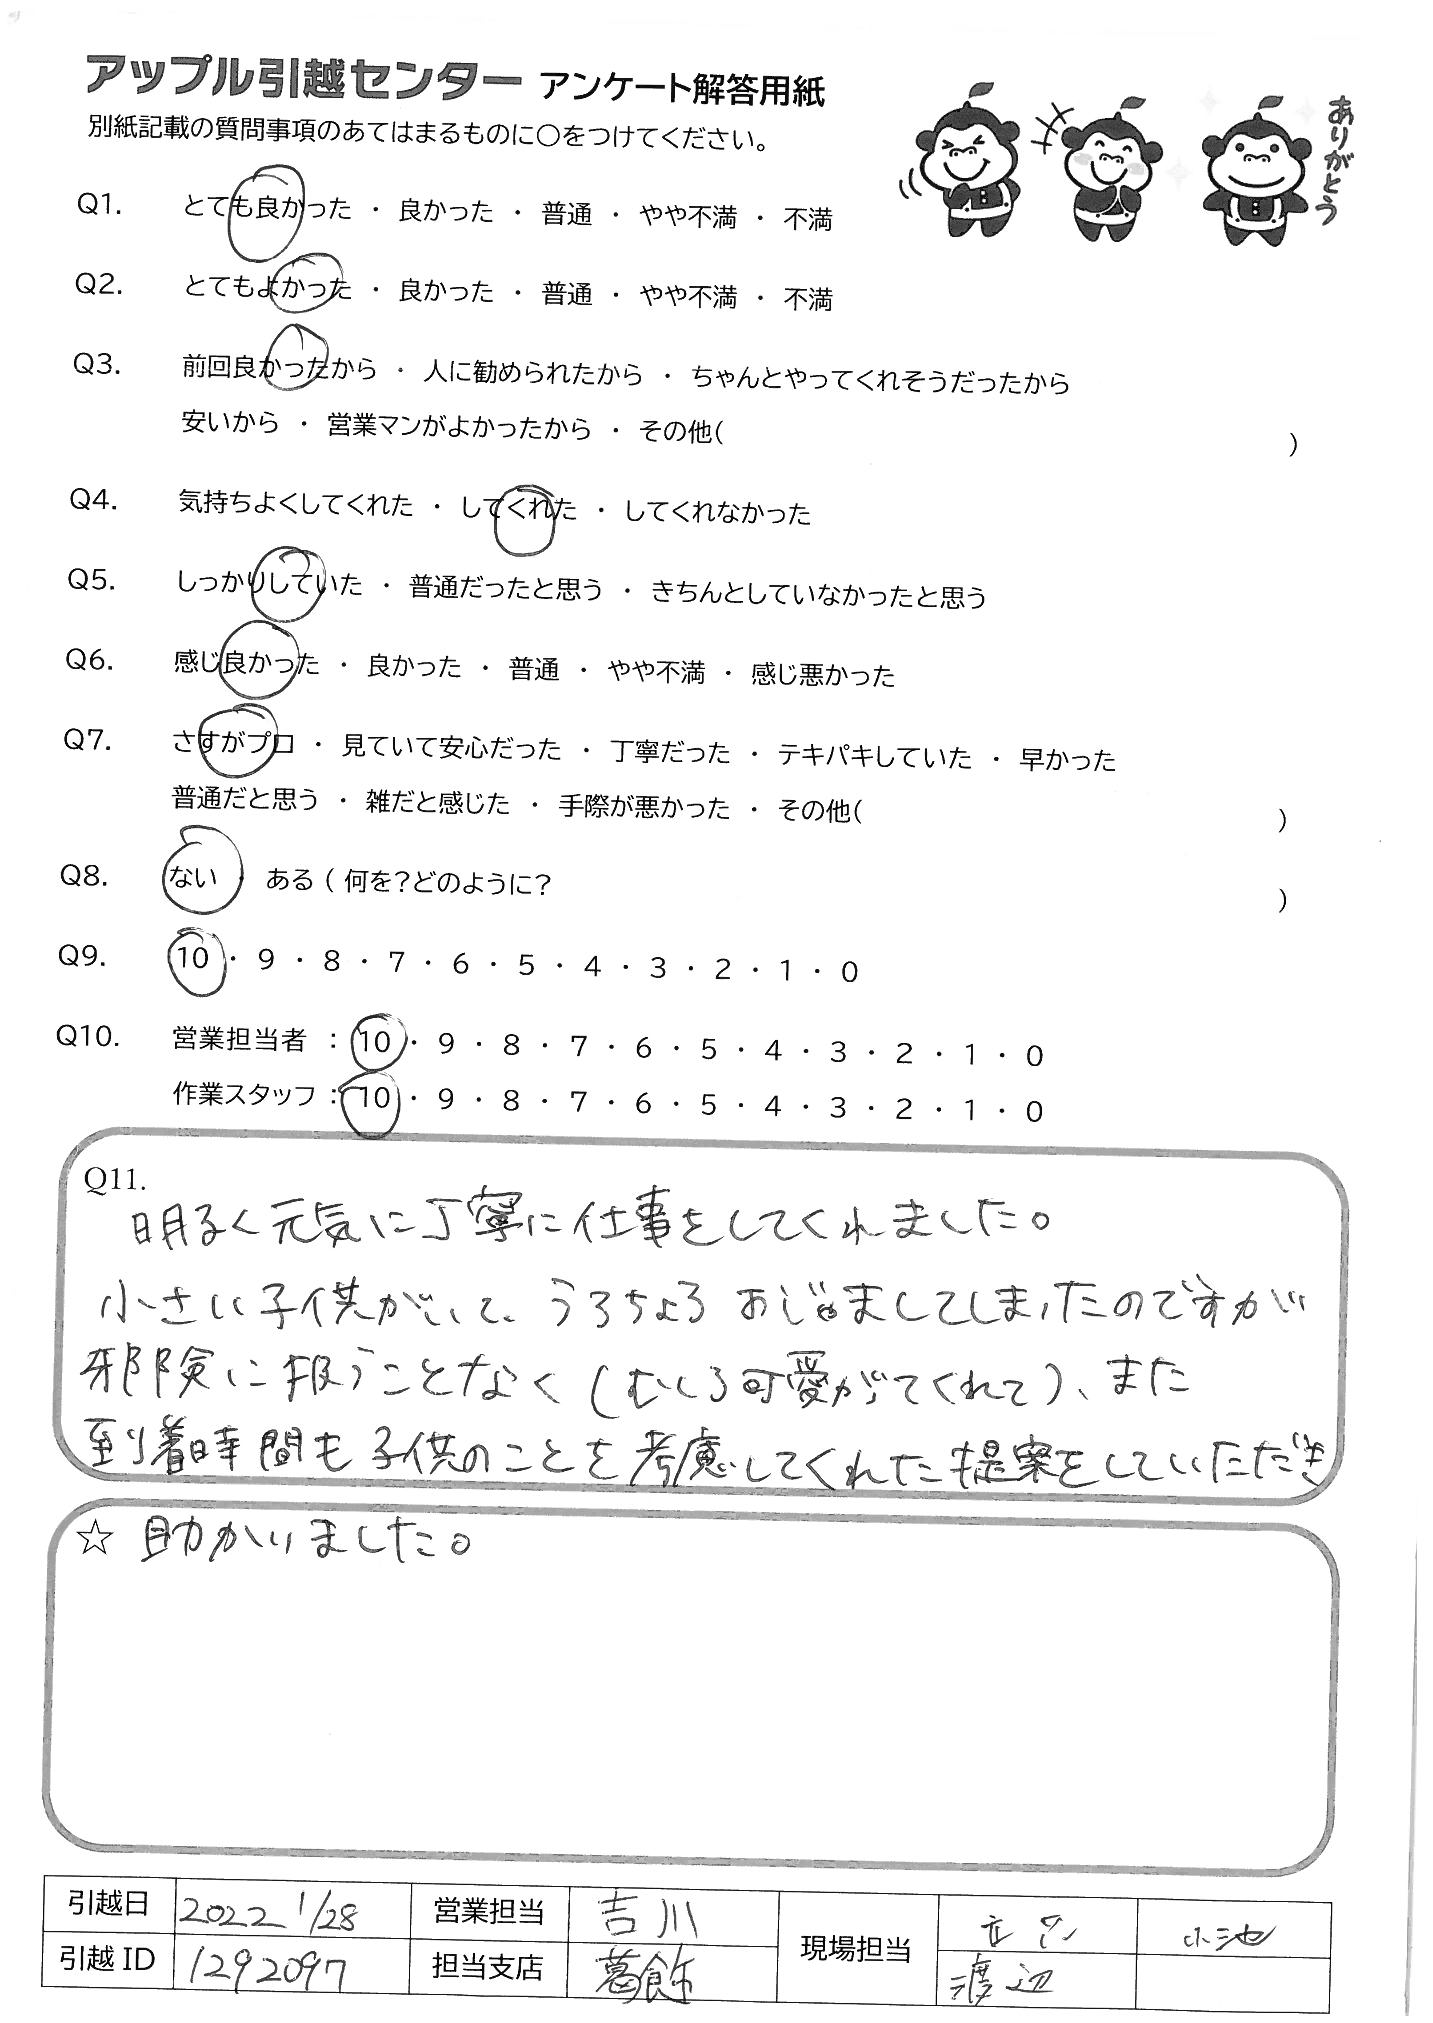 アップル引越センター アンケート解答用紙
別紙記載の質問事項のあてはまるものに○をつけてください。
ありがとう
Q1. とても良かった ・ 良かった ・ 普通 ・ やや不満 ・ 不満
Q2. とてもよかった ・ 良かった ・ 普通 ・ やや不満 ・ 不満
Q3. 前回良かったから ・ 人に勧められたから ・ ちゃんとやってくれそうだったから
安いから ・ 営業マンがよかったから ・ その他( )
Q4. 気持ちよくしてくれた ・ してくれた ・ してくれなかった
Q5. しっかりしていた ・ 普通だったと思う ・ きちんとしていなかったと思う
Q6. 感じ良かった ・ 良かった ・ 普通 ・ やや不満 ・ 感じ悪かった
Q7. さすがプロ ・ 見ていて安心だった ・ 丁寧だった ・ テキパキしていた ・ 早かった
普通だと思う ・ 雑だと感じた ・ 手際が悪かった ・ その他( )
Q8. ない ・ ある ( 何を?どのように? )
Q9. 10 ・ 9 ・ 8 ・ 7 ・ 6 ・ 5 ・ 4 ・ 3 ・ 2 ・ 1 ・ 0
Q10. 営業担当者 : 10 ・ 9 ・ 8 ・ 7 ・ 6 ・ 5 ・ 4 ・ 3 ・ 2 ・ 1 ・ 0
作業スタッフ : 10 ・ 9 ・ 8 ・ 7 ・ 6 ・ 5 ・ 4 ・ 3 ・ 2 ・ 1 ・ 0
Q11.
明るく元気に丁寧に仕事をしてくれました。
小さい子供がいて、うろちょろおじゃましてしまったのですが
邪険に扱うことなく(むしろ可愛がってくれて)、また
到着時間も子供のことを考慮してくれた提案をしていただき
☆ 助かりました。
引越日 2022 1/28 営業担当 吉川 現場担当 小池
引越 ID 1292097 担当支店 葛飾 渡辺